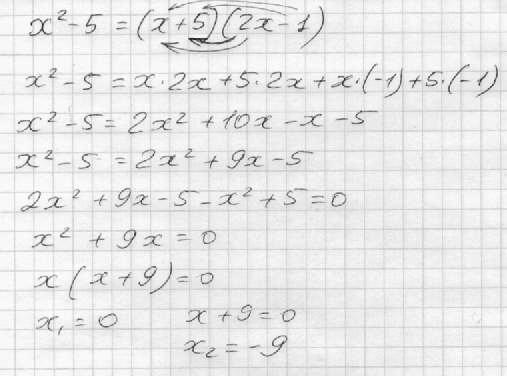 x² - 5 = (x+5)(2x-1)
x² - 5 = x·2x + 5·2x + x·(-1) + 5·(-1)
x² - 5 = 2x² + 10x - x - 5
x² - 5 = 2x² + 9x - 5
2x² + 9x - 5 - x² + 5 = 0
x² + 9x = 0
x(x+9) = 0
x₁ = 0 x + 9 = 0
x₂ = -9